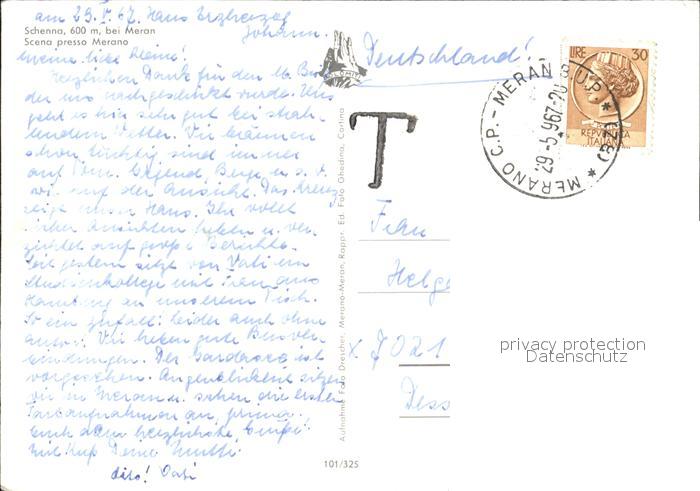 am 29.V.67. Haus Erzherzog
Johann.
Schenna, 600 m, bei Meran
Scena presso Merano
Meine liebe Kleine!
Herzlichen Dank für den
der uns nachgeschickt wurde. Uns
geht es hier sehr gut bei strah-
lendem Wetter. Wir bräunen
schon tüchtig, sind immer
auf Gegend, Berge u. s.
wie auf der Ansicht. Das Kreuz
zeigt unser Haus. Ihr wollt
lieber Ansichten haben u. ver-
zichtet auf große Berichte.
Seit gestern sitzt von Vati ein
Studienkollege mit Frau aus
Hamburg an unserem Tisch.
So ein Zufall! Leider auch ohne
Auto. Wir haben gute Busver-
bindungen. Der Gardasee ist
vorgesehen. Augenblicklich sitzen
wir in Meran u. sehen die ersten
Farbaufnahmen an, prima.
Euch allen herzlichste Grüße!
Mit Kuß Deine Mutti
dito! Vati
Deutschland!
T
LIRE 30
REPVBBLICA
ITALIANA
MERANO C.P. - MERAN B.U.P.
29-5-967-20
Aufnahme Foto Drescher, Merano-Meran, Rappr. Ed. Foto Ghedina, Cortina
Frau
Helge
x 7021
privacy protection
Datenschutz
101/325